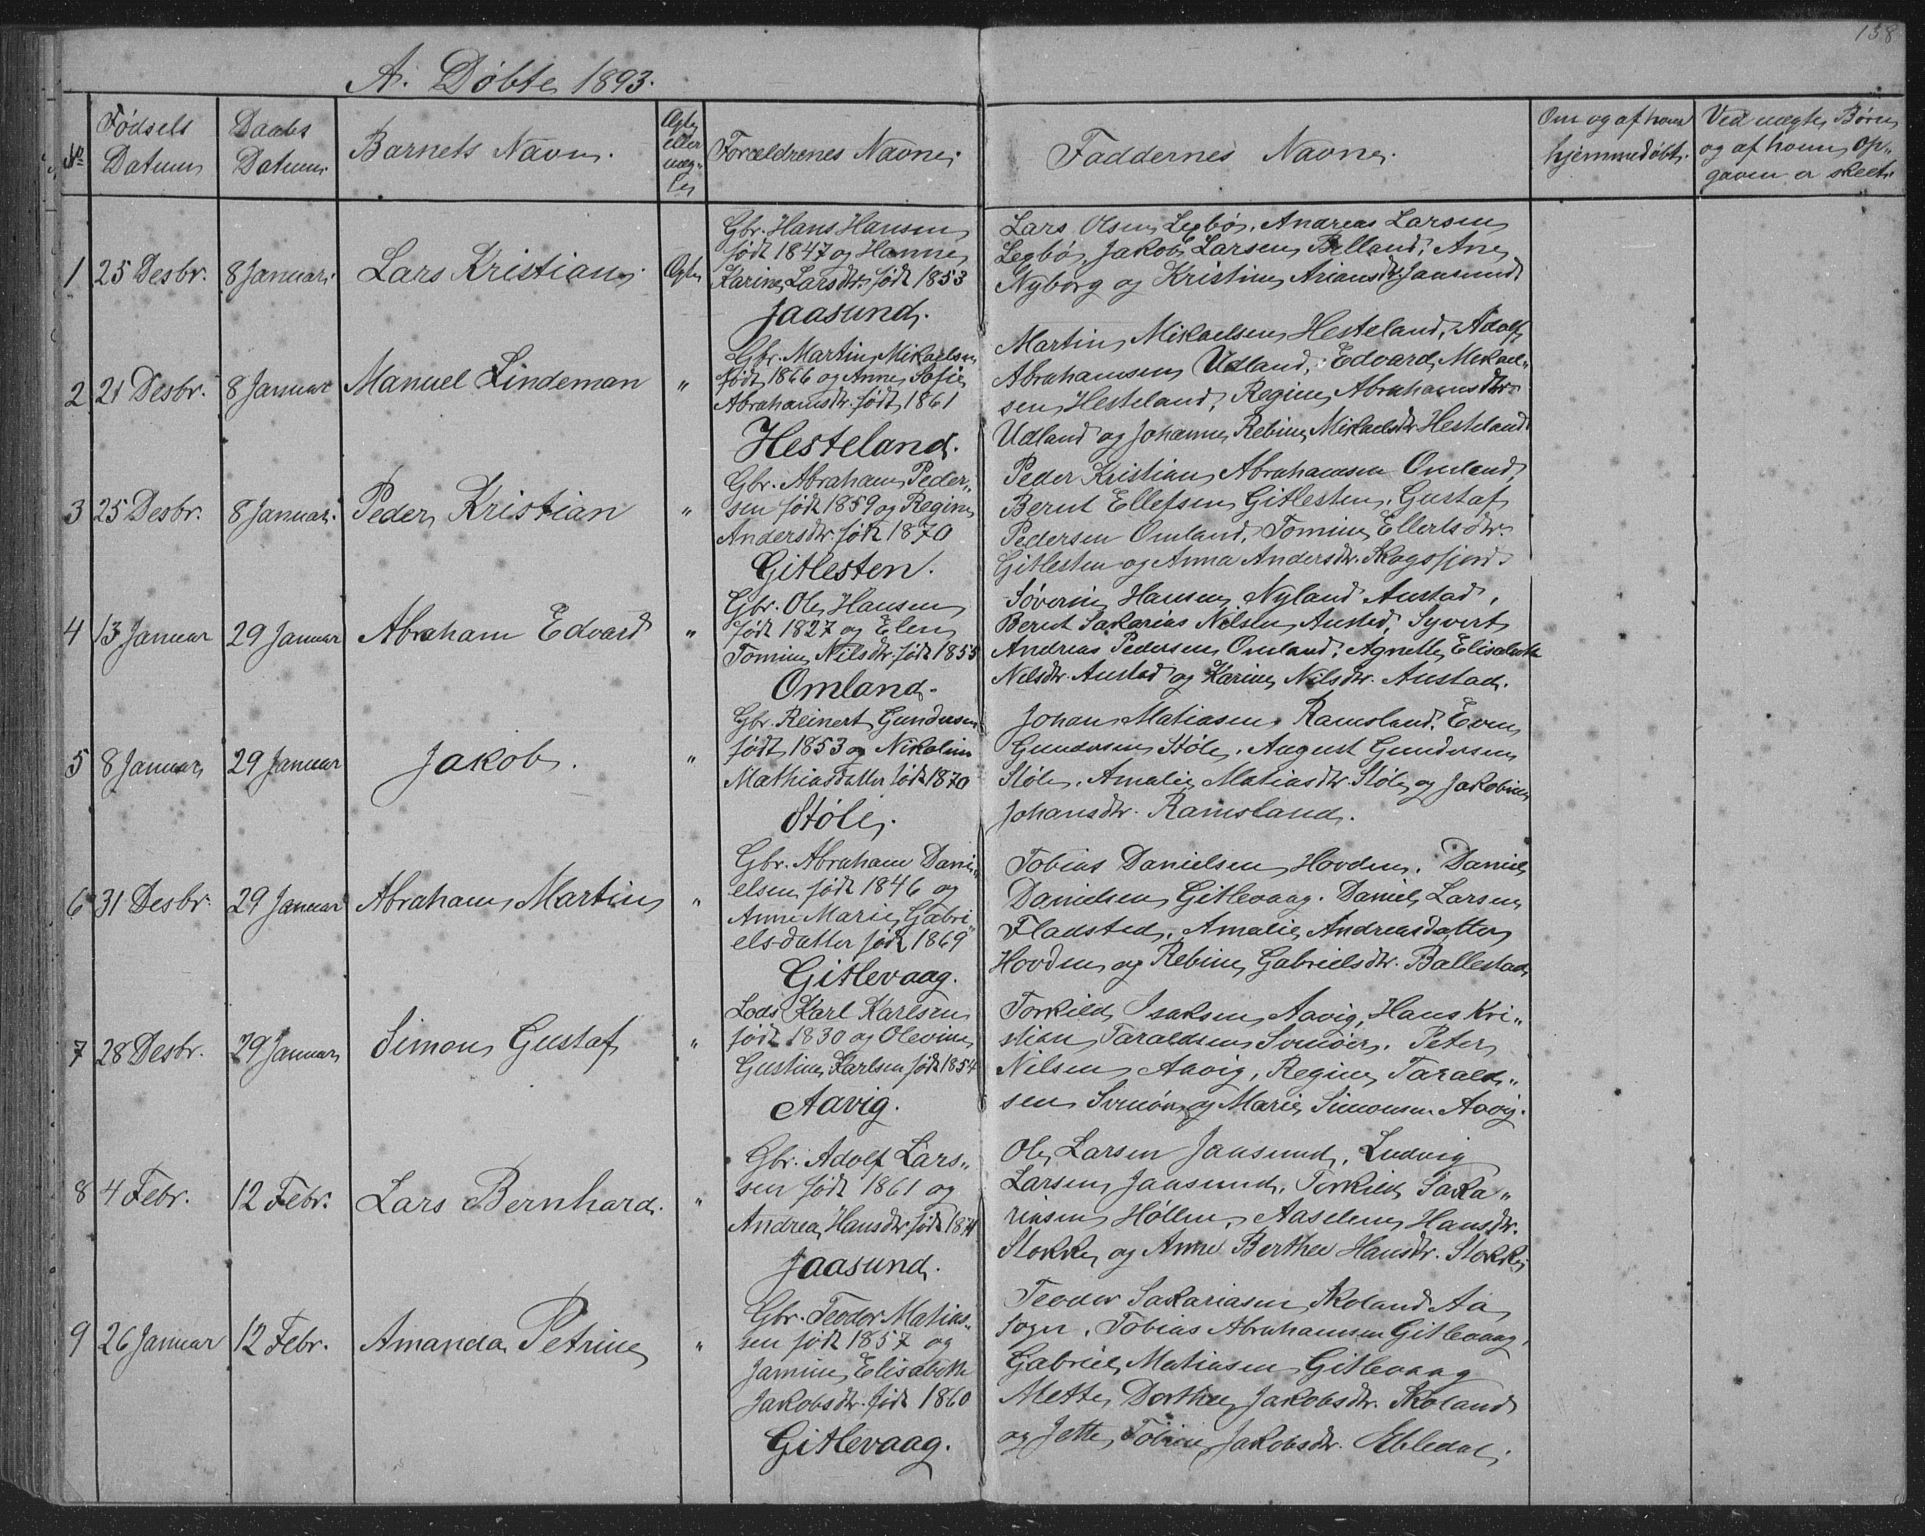 158
A. Døbte 1893.
No
Fødsels Datum
Daabs Datum
Barnets Navn.
Ægte eller uægte
Forældrenes Navne.
Faddernes Navne.
Om og af hvem hjemmedøbt.
Ved uægte Børn og af hvem Opgaven er skeet.
1 25 Desbr. 8 Januar. Lars Kristian. Ægte
Gbr. Hans Hansen
født 1847 og Hanne
Karine Larsdtr. født 1853
Jaasund.
Lars Olsen Legbø. Andreas Larsen
Legbø, Jakob Larsen Belland, Ane
Nyborg og Kristine Ariansdtr. Jaasund
2 21 Desbr. 8 Januar Manuel Lindeman "
Gbr. Martin Mikaelsen
født 1866 og Anne Sofie
Abrahamsdtr. født 1861
Hesteland.
Martin Mikaelsen Hesteland, Adolf
Abrahamsen Udland, Edvard Mikael„
sen Hesteland, Regine Abrahamsdtr.
Udland og Johanne Rebine Mikaelsdtr Hesteland
3 25 Desbr. 8 Januar. Peder Kristian "
Gbr. Abraham Peder„
sen født 1859 og Regine
Andersdtr. født 1870
Gitlesten.
Peder Kristian Abrahamsen Omland,
Bernt Ellefsen Gitlesten, Gustaf
Pedersen Omland, Tomine Ellertsdtr.
Gitlesten og Anna Andersdtr. Skogsfjord
4 13 Januar 29 Januar Abraham Edvard "
Gbr. Ole Hansen
født 1827 og Elen
Tomine Nilsdtr. født 1855
Omland.
Søverin Hansen Nyland Austad,
Bernt Sakarias Nilsen Austad, Syvert
Andreas Pedersen Omland, Agnette Elisabeth
Nilsdtr. Austad og Karine Nilsdtr. Austad.
5 8 Januar 29 Januar Jakob. "
Gbr. Reinert Gundersen
født 1853 og Nikoline
Mathiasdatter født 1870
Støle.
Johan Matiasen Ramsland, Even
Gundersen Støle, August Gundersen
Støle, Amalie Matiasdtr. Støle og Jakobine
Johansdtr. Ramsland.
6 31 Desbr. 29 Januar Abraham Martin "
Gbr. Abraham Dani„
elsen født 1846 og
Anne Marie Gabri„
elsdatter født 1869
Gitlevaag.
Tobias Danielsen Hovden, Daniel
Danielsen Gitlevaag. Daniel Larsen
Fladsted, Amalie Andreasdatter
Hovden og Rebine Gabrielsdtr. Ballestad
7 28 Desbr. 29 Januar Simon Gustaf "
Lods Karl Karlsen
født 1830 og Olevine
Gustine Karlsen født 1854
Aavig.
Torkild Isaksen Aavig, Hans Kri„
stian Taraldsen Svinøer, Peter
Nilsen Aavig, Regine Tarald„
sen Svinør og Marie Simonsen Aavig.
8 4 Febr. 12 Febr. Lars Bernhard. "
Gbr. Adolf Lars„
sen født 1861 og
Andrea Hansdtr. født
Jaasund.
Ole Larsen Jaasund, Ludvig
Larsen Jaasund, Torkild Saka„
riasen Høllen, Aaselene Hansdtr.
Stokke og Anne Berthea Hansdtr. Stokke
9 26 Januar 12 Febr. Amanda Petrine "
Gbr. Teodor Matias„
sen født 1857 og
Jamine Elisabeth
Jakobsdtr. født 1860
Gitlevaag.
Teodor Sakariasen Skoland Aa
sogn, Tobias Abrahamsen Gitlevaag,
Gabriel Matiasen Gitlevaag
Mette Dorthea Jakobsdtr. Skoland
og Jette Jakobsdtr.